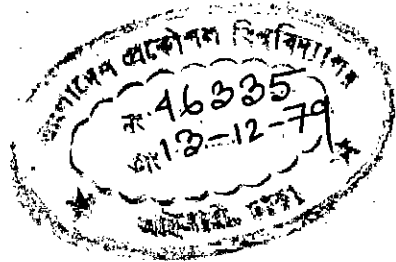 বাংলাদেশ প্রকৌশল বিশ্ববিদ্যালয়
নং 46335
তাং 13-12-79
ঢাকা